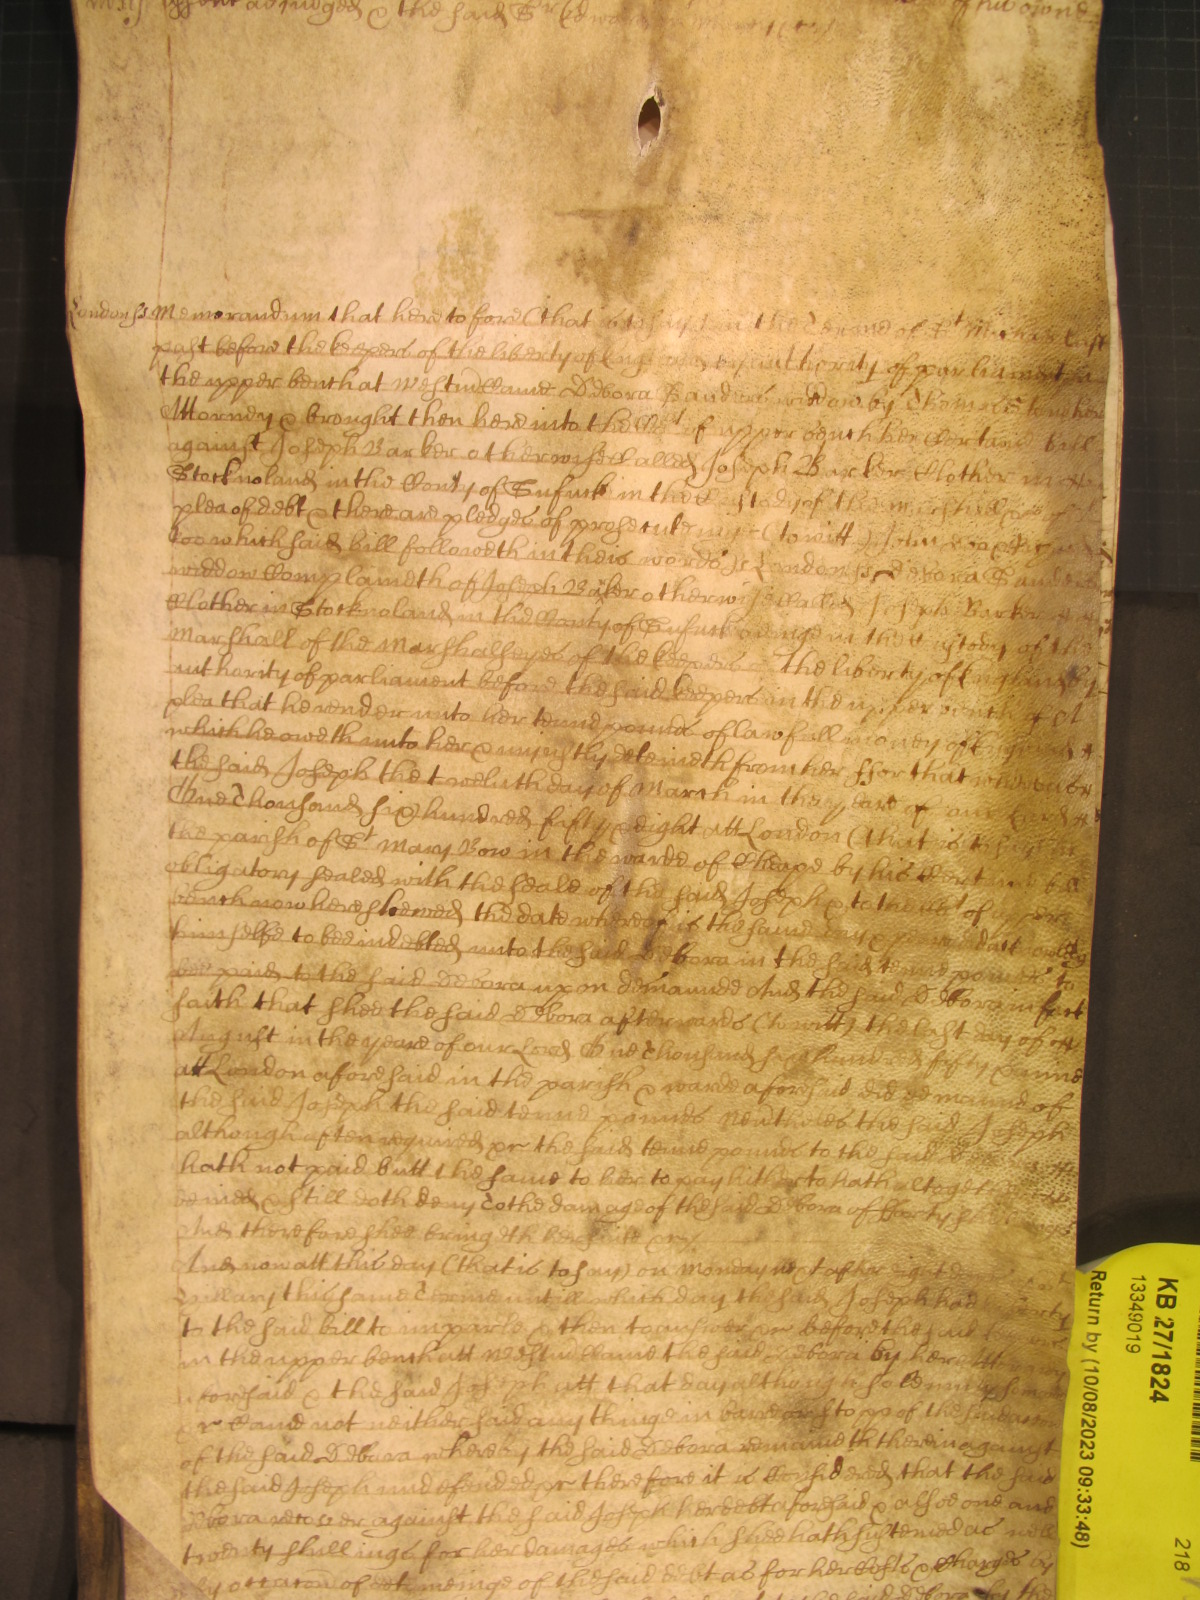 adjudged & the said Sr Edward in Mercy &c
Londonss Memorandum that heretofore (that is to say) in the Terme of St Michas last
past before the keepers of the liberty of England by authority of parliament in
the upper bench at Westmr Came Debora Sanders widdow by Thomas
Attorney & brought then here into the Cort of upper bench her Certaine bill
against Joseph Barker otherwise Called Joseph Barker Clother in
Stocknoland in the Conty of Sufuck in the Custody of the Marshall &c of
plea of debt & there are pledges of prosecuteing (to witt) John Doe & Richard
Roo which said bill followeth in theis words ss London ss Debora Sanders
widdow Complaineth of Joseph Barker otherwise Called Joseph Barker
Clother in Stocknoland in the Conty of Sufuck beinge in the Custody of the
Marshall of the Marshalseyes of the keepers of the liberty of England by
authority of parliament before the said keepers in the upper bench of A
plea that he render unto her tenne pounds of lawfull money of England
which he oweth unto her & uniustly deteineth from her ffor that whereas
the said Joseph the twelvth day of March in the yeare of our Lord
One Thousand six hundred fifty & eight att London (that is to say) in
the parish of St Mary Bow in the warde of Cheape by his Certaine bill
obligatory sealed with the seale of the said Joseph & to the Cort of upper
bench now here shewed the date whereof is the same day & yeare did acknowledge
himselfe to bee indebted unto the said Debora in the said tenne pounds to
bee paid to the said Debora upon demaunde And the said Debora in fact
saith that shee the said Debora afterwards (to witt) the last day of
August in the yeare of our Lord One Thousand six hundred fifty & nine
att London aforesaid in the parish & warde aforesaid did demaund of
the said Joseph the said tenne pounds Neverthelesse the said Joseph
although often required &c the said tenne pounds to the said Debora
hath not paid butt the same to her to pay hitherto hath altogether
denied & still doth deny To the damage of the said Debora of fforty shillings
And therefore shee bringeth her suite &c
And now att this day (that is to say) on Monday next after eight dayes of St
Hillary this same Terme untill which day the said Joseph had liberty
to the said bill to imparle & then to answer &c before the said keepers
in the upper bench att Westmr Came the said Debora by her Attorney
aforesaid & the said Joseph att that day although solemnly demanded
Came not neither said any thinge in barre or stopp of the said accon
of the said Debora whereby the said Debora remaineth therein against
the said Joseph undefended &c therefore it is Considered that the said
Debora recover against the said Joseph her debt aforesaid & alsoe one and
twenty shillings for her damages which shee hath susteined as well
by occacon of deteineinge of the said debt as for her Costs & Charges by
the said Debora by the
KB 27/1824
13349019
Return by (10/08/2023 09:33:48)
218